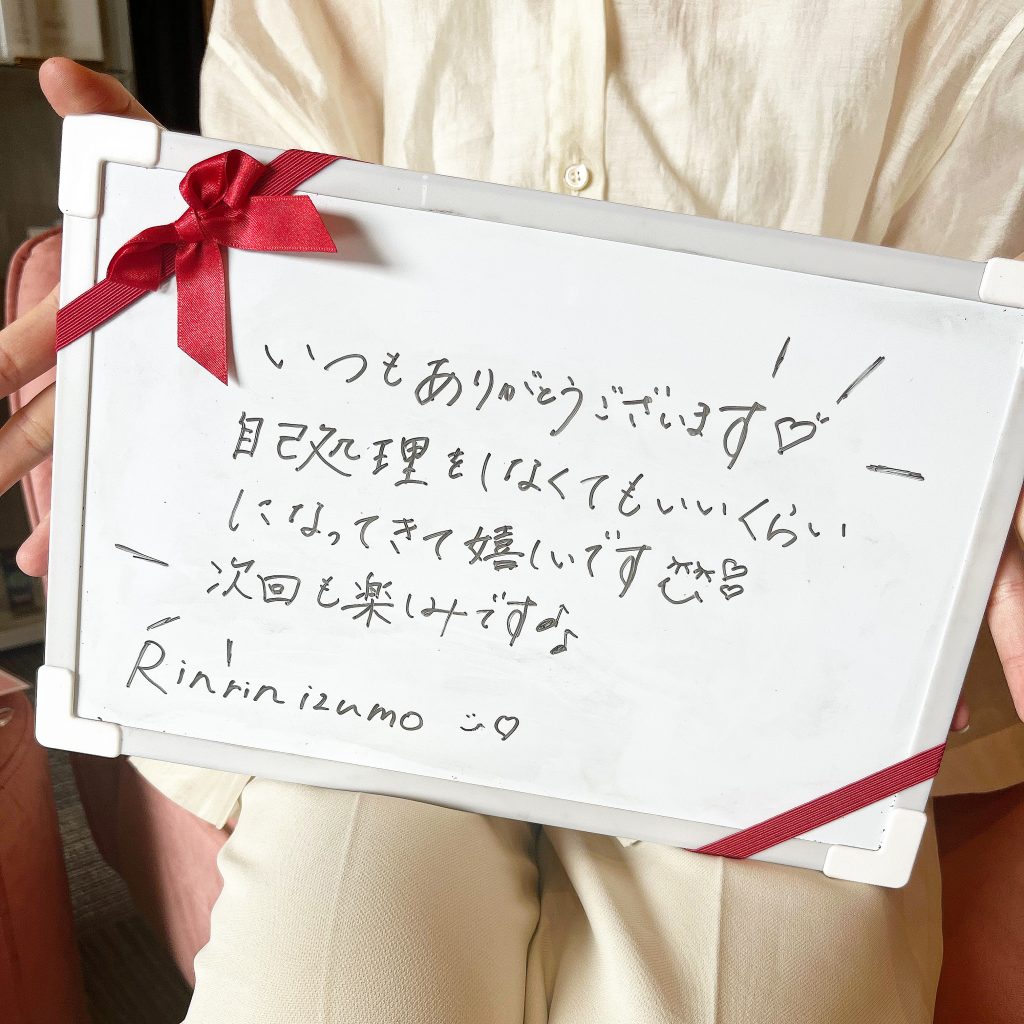 いつもありがとうございます♡
自己処理をしなくてもいいくらい
になってきて嬉しいです
次回も楽しみです♪
Rinrin izumo ♡